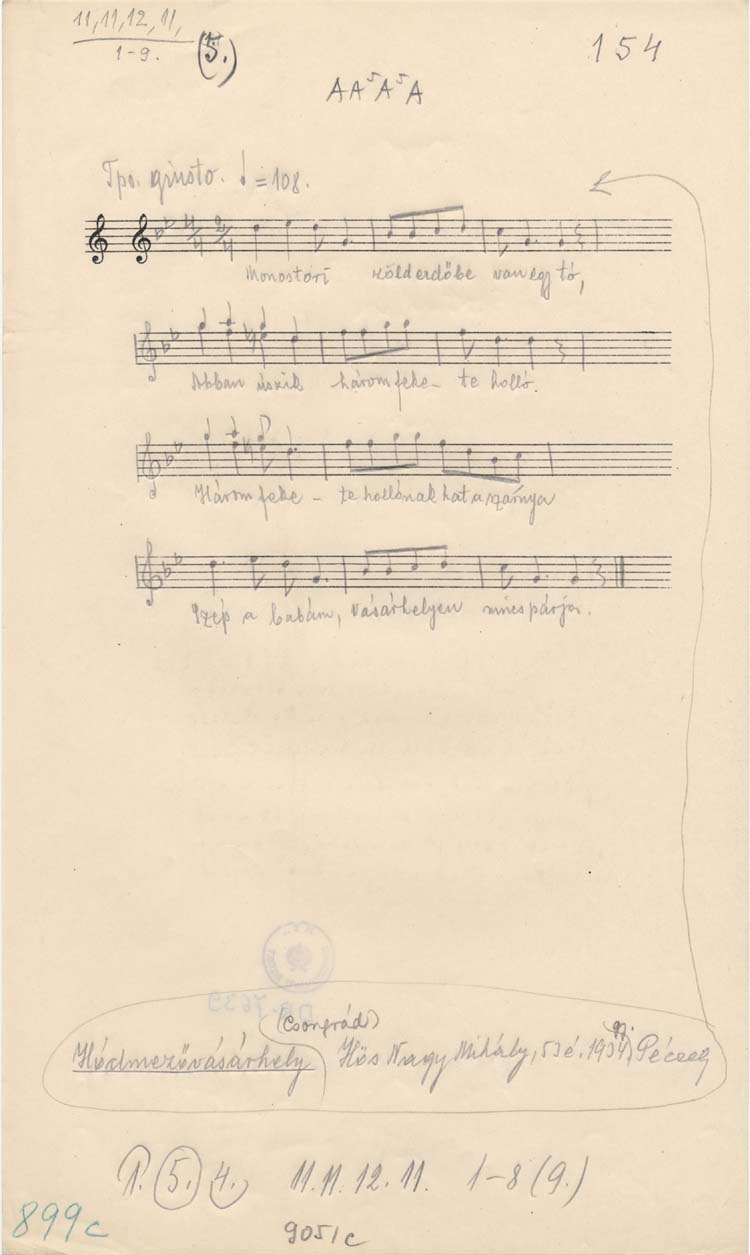 11, 11, 12, 11,
1-9.
(5.)
154
A A⁵ A⁵ A
Tpo. giusto. ♩=108.
4/4 2/4
Monostori zölderdőbe van egy tó,
Abban úszik három feke- te holló.
Három feke - te hollónak hat a szárnya
Szép a babám, vásárhelyen nincs párja.
(Csongrád)
Hódmezővásárhely Hős Nagy Mihály, 53 é. 1934,
1. (5.) 4. 11. 11. 12. 11. 1-8 (9.)
899c
9051c